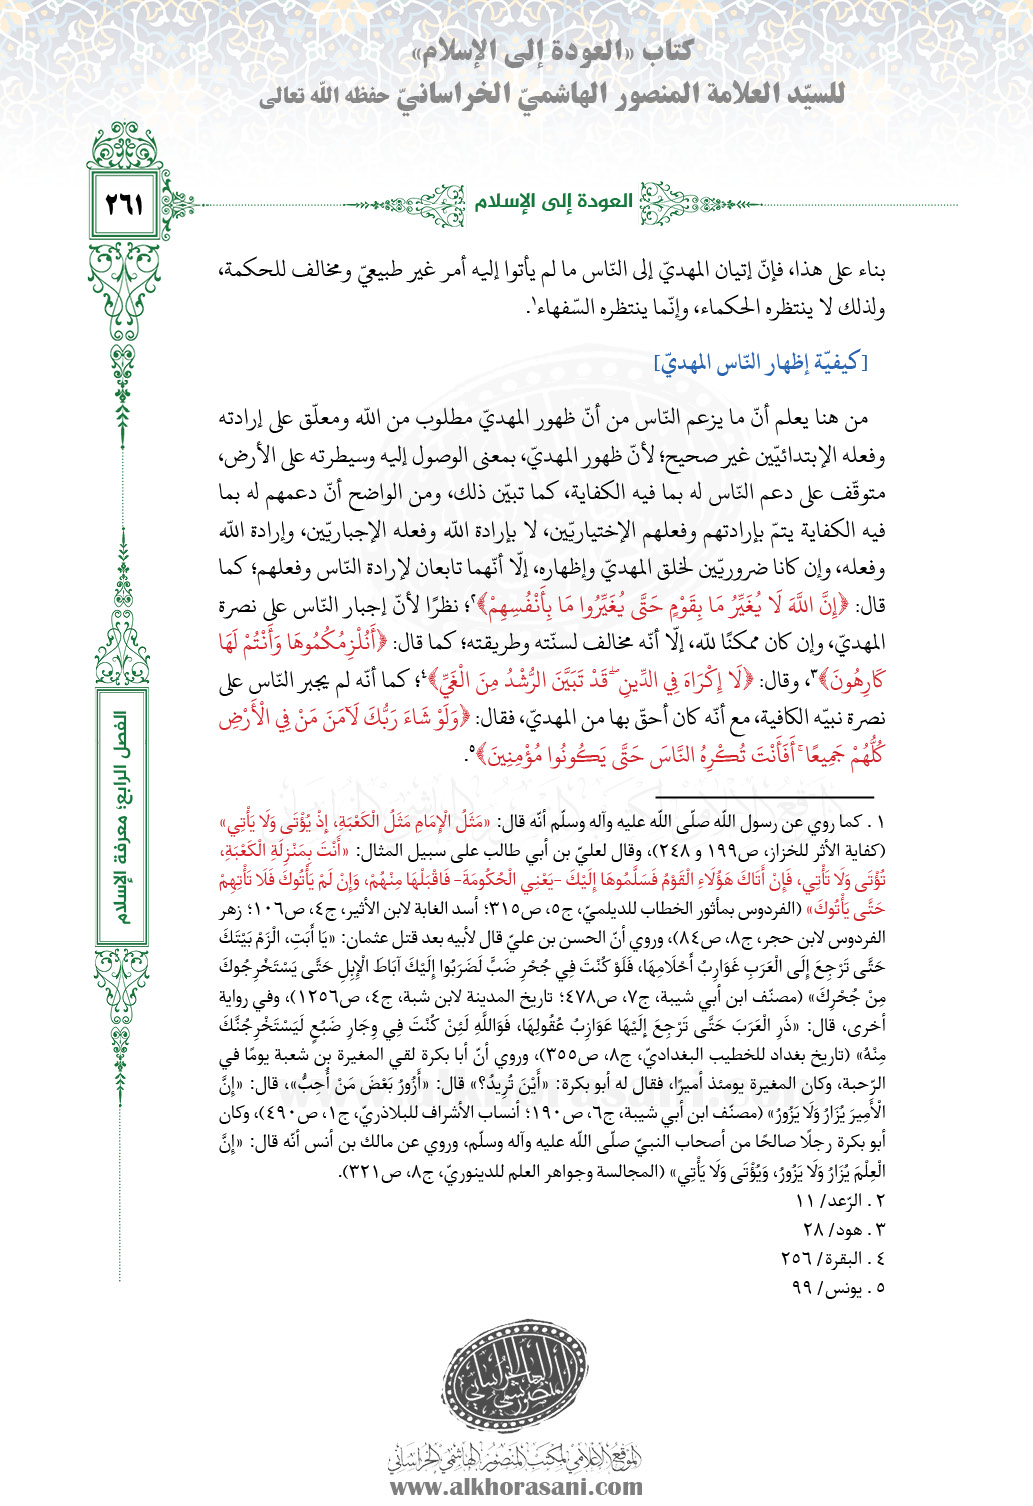 كتاب «العودة إلى الإسلام»
للسيّد العلامة المنصور الهاشميّ الخراسانيّ حفظه الله تعالى
العودة إلى الإسلام
٢٦١
بناء على هذا، فإنّ إتيان المهديّ إلى النّاس ما لم يأتوا إليه أمر غير طبيعيّ ومخالف للحكمة،
ولذلك لا ينتظره الحكماء، وإنّما ينتظره السّفهاء١.
[كيفيّة إظهار النّاس المهديّ]
من هنا يعلم أنّ ما يزعم النّاس من أنّ ظهور المهديّ مطلوب من الله ومعلّق على إرادته
وفعله الإبتدائيّين غير صحيح؛ لأنّ ظهور المهديّ، بمعنى الوصول إليه وسيطرته على الأرض،
متوقّف على دعم النّاس له بما فيه الكفاية، كما تبيّن ذلك، ومن الواضح أنّ دعمهم له بما
فيه الكفاية يتمّ بإرادتهم وفعلهم الإختياريّين، لا بإرادة الله وفعله الإجباريّين، وإرادة الله
وفعله، وإن كانا ضروريّين لخلق المهديّ وإظهاره، إلّا أنّهما تابعان لإرادة النّاس وفعلهم؛ كما
قال: ﴿إِنَّ اللَّهَ لَا يُغَيِّرُ مَا بِقَوْمٍ حَتَّى يُغَيِّرُوا مَا بِأَنْفُسِهِمْ﴾٢؛ نظرًا لأنّ إجبار النّاس على نصرة
المهديّ، وإن كان ممكنًا لله، إلّا أنّه مخالف لسنّته وطريقته؛ كما قال: ﴿أَنُلْزِمُكُمُوهَا وَأَنْتُمْ لَهَا
كَارِهُونَ﴾٣، وقال: ﴿لَا إِكْرَاهَ فِي الدِّينِ ۖ قَدْ تَبَيَّنَ الرُّشْدُ مِنَ الْغَيِّ﴾٤؛ كما أنّه لم يجبر النّاس على
نصرة نبيّه الكافية، مع أنّه كان أحقّ بها من المهديّ، فقال: ﴿وَلَوْ شَاءَ رَبُّكَ لَآمَنَ مَنْ فِي الْأَرْضِ
كُلُّهُمْ جَمِيعًا ۚ أَفَأَنْتَ تُكْرِهُ النَّاسَ حَتَّى يَكُونُوا مُؤْمِنِينَ﴾٥.
١ . كما روي عن رسول الله صلّى الله عليه وآله وسلّم أنّه قال: «مَثَلُ الْإِمَامِ مَثَلُ الْكَعْبَةِ، إِذْ يُؤْتَى وَلَا يَأْتِي»
(كفاية الأثر للخزاز، ص١٩٩ و ٢٤٨)، وقال لعليّ بن أبي طالب على سبيل المثال: «أَنْتَ بِمَنْزِلَةِ الْكَعْبَةِ،
تُؤْتَى وَلَا تَأْتِي، فَإِنْ أَتَاكَ هَؤُلَاءِ الْقَوْمُ فَسَلَّمُوهَا إِلَيْكَ -يَعْنِي الْحُكُومَةَ- فَاقْبَلْهَا مِنْهُمْ، وَإِنْ لَمْ يَأْتُوكَ فَلَا تَأْتِهِمْ
حَتَّى يَأْتُوكَ» (الفردوس بمأثور الخطاب للديلميّ، ج٥، ص٣١٥؛ أسد الغابة لابن الأثير، ج٤، ص١٠٦؛ زهر
الفردوس لابن حجر، ج٨، ص٨٤)، وروي أنّ الحسن بن عليّ قال لأبيه بعد قتل عثمان: «يَا أَبَتِ، الْزَمْ بَيْتَكَ
حَتَّى تَرْجِعَ إِلَى الْعَرَبِ عَوَازِبُ أَحْلَامِهَا، فَلَوْ كُنْتَ فِي جُحْرِ ضَبٍّ لَضَرَبُوا إِلَيْكَ آبَاطَ الْإِبِلِ حَتَّى يَسْتَخْرِجُوكَ
مِنْ جُحْرِكَ» (مصنّف ابن أبي شيبة، ج٧، ص٤٧٨؛ تاريخ المدينة لابن شبة، ج٤، ص١٢٥٦)، وفي رواية
أخرى، قال: «ذَرِ الْعَرَبَ حَتَّى تَرْجِعَ إِلَيْهَا عَوَازِبُ عُقُولِهَا، فَوَاللَّهِ لَئِنْ كُنْتَ فِي وِجَارِ ضَبُعٍ لَيَسْتَخْرِجُنَّكَ
مِنْهُ» (تاريخ بغداد للخطيب البغداديّ، ج٨، ص٣٥٥)، وروي أنّ أبا بكرة لقي المغيرة بن شعبة يومًا في
الرّحبة، وكان المغيرة يومئذ أميرًا، فقال له أبو بكرة: «أَيْنَ تُرِيدُ؟» قال: «أَزُورُ بَعْضَ مَنْ أُحِبُّ»، قال: «إِنَّ
الْأَمِيرَ يُزَارُ وَلَا يَزُورُ» (مصنّف ابن أبي شيبة، ج٦، ص١٩٠؛ أنساب الأشراف للبلاذريّ، ج١، ص٤٩٠)، وكان
أبو بكرة رجلًا صالحًا من أصحاب النبيّ صلّى الله عليه وآله وسلّم، وروي عن مالك بن أنس أنّه قال: «إِنَّ
الْعِلْمَ يُزَارُ وَلَا يَزُورُ، وَيُؤْتَى وَلَا يَأْتِي» (المجالسة وجواهر العلم للدينوريّ، ج٨، ص٣٢١).
٢ . الرّعد/ ١١
٣ . هود/ ٢٨
٤ . البقرة/ ٢٥٦
٥ . يونس/ ٩٩
الفصل الرابع: معرفة الإسلام
المنصور الهاشمي الخراساني
الموقع الإعلامي لمكتب المنصور الهاشمي الخراساني
www.alkhorasani.com